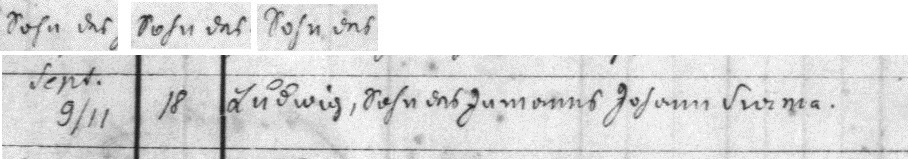 Sohn des Sohn des Sohn des
Sept.
9/11 18 Ludwig, Sohn des Inmanns Johann Surma.